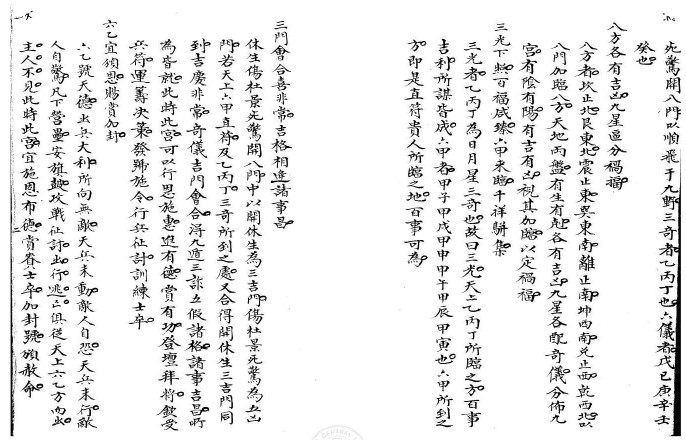 死驚開八門以順飛于九野三奇者乙丙丁也六儀者戊己庚辛壬
癸也
八方各有吉凶九星區分禍福
八方者坎正北艮東北震正東巽東南離正南坤西南兌正西乾西北以
八門加臨八方天地丙盤有生有剋各有吉凶九星各配奇儀分佈九
宮有陰有陽有吉有凶視其加臨以定禍福
三光下照百福咸臻六甲來臨千祥駢集
三光者乙丙丁為日月星三奇也故曰三光天上乙丙丁所臨之方百事
吉利所謀皆成六甲者甲子甲戌甲申甲午甲辰甲寅也六甲所到之
方即是直符貴人所臨之地百事可為
三門會合喜非常吉格相逢諸事昌
休生傷杜景死驚開八門中以開休生為三吉門傷杜景死驚為五凶
門若天上六甲直符及乙丙丁三奇所到之處又合得開休生三吉門同
到吉慶非常奇儀吉門會合得九遁三詐五假諸格諸事吉昌所
為皆就此時此宮可以行恩施惠進有德賞有功登壇拜將欽受
兵符運籌决策發號施令行兵征討訓練士卒
六乙宜頒恩賜賞加封
六乙號天德出兵大利所向無敵天兵未動敵人自恐天兵未行敵
人自驚凡下營曼安旗鼓攻戰征討出行逃亡俱從天上六乙方而出
主人不見此時此宮宜施恩布德賞眷士卒加封號頒赦命